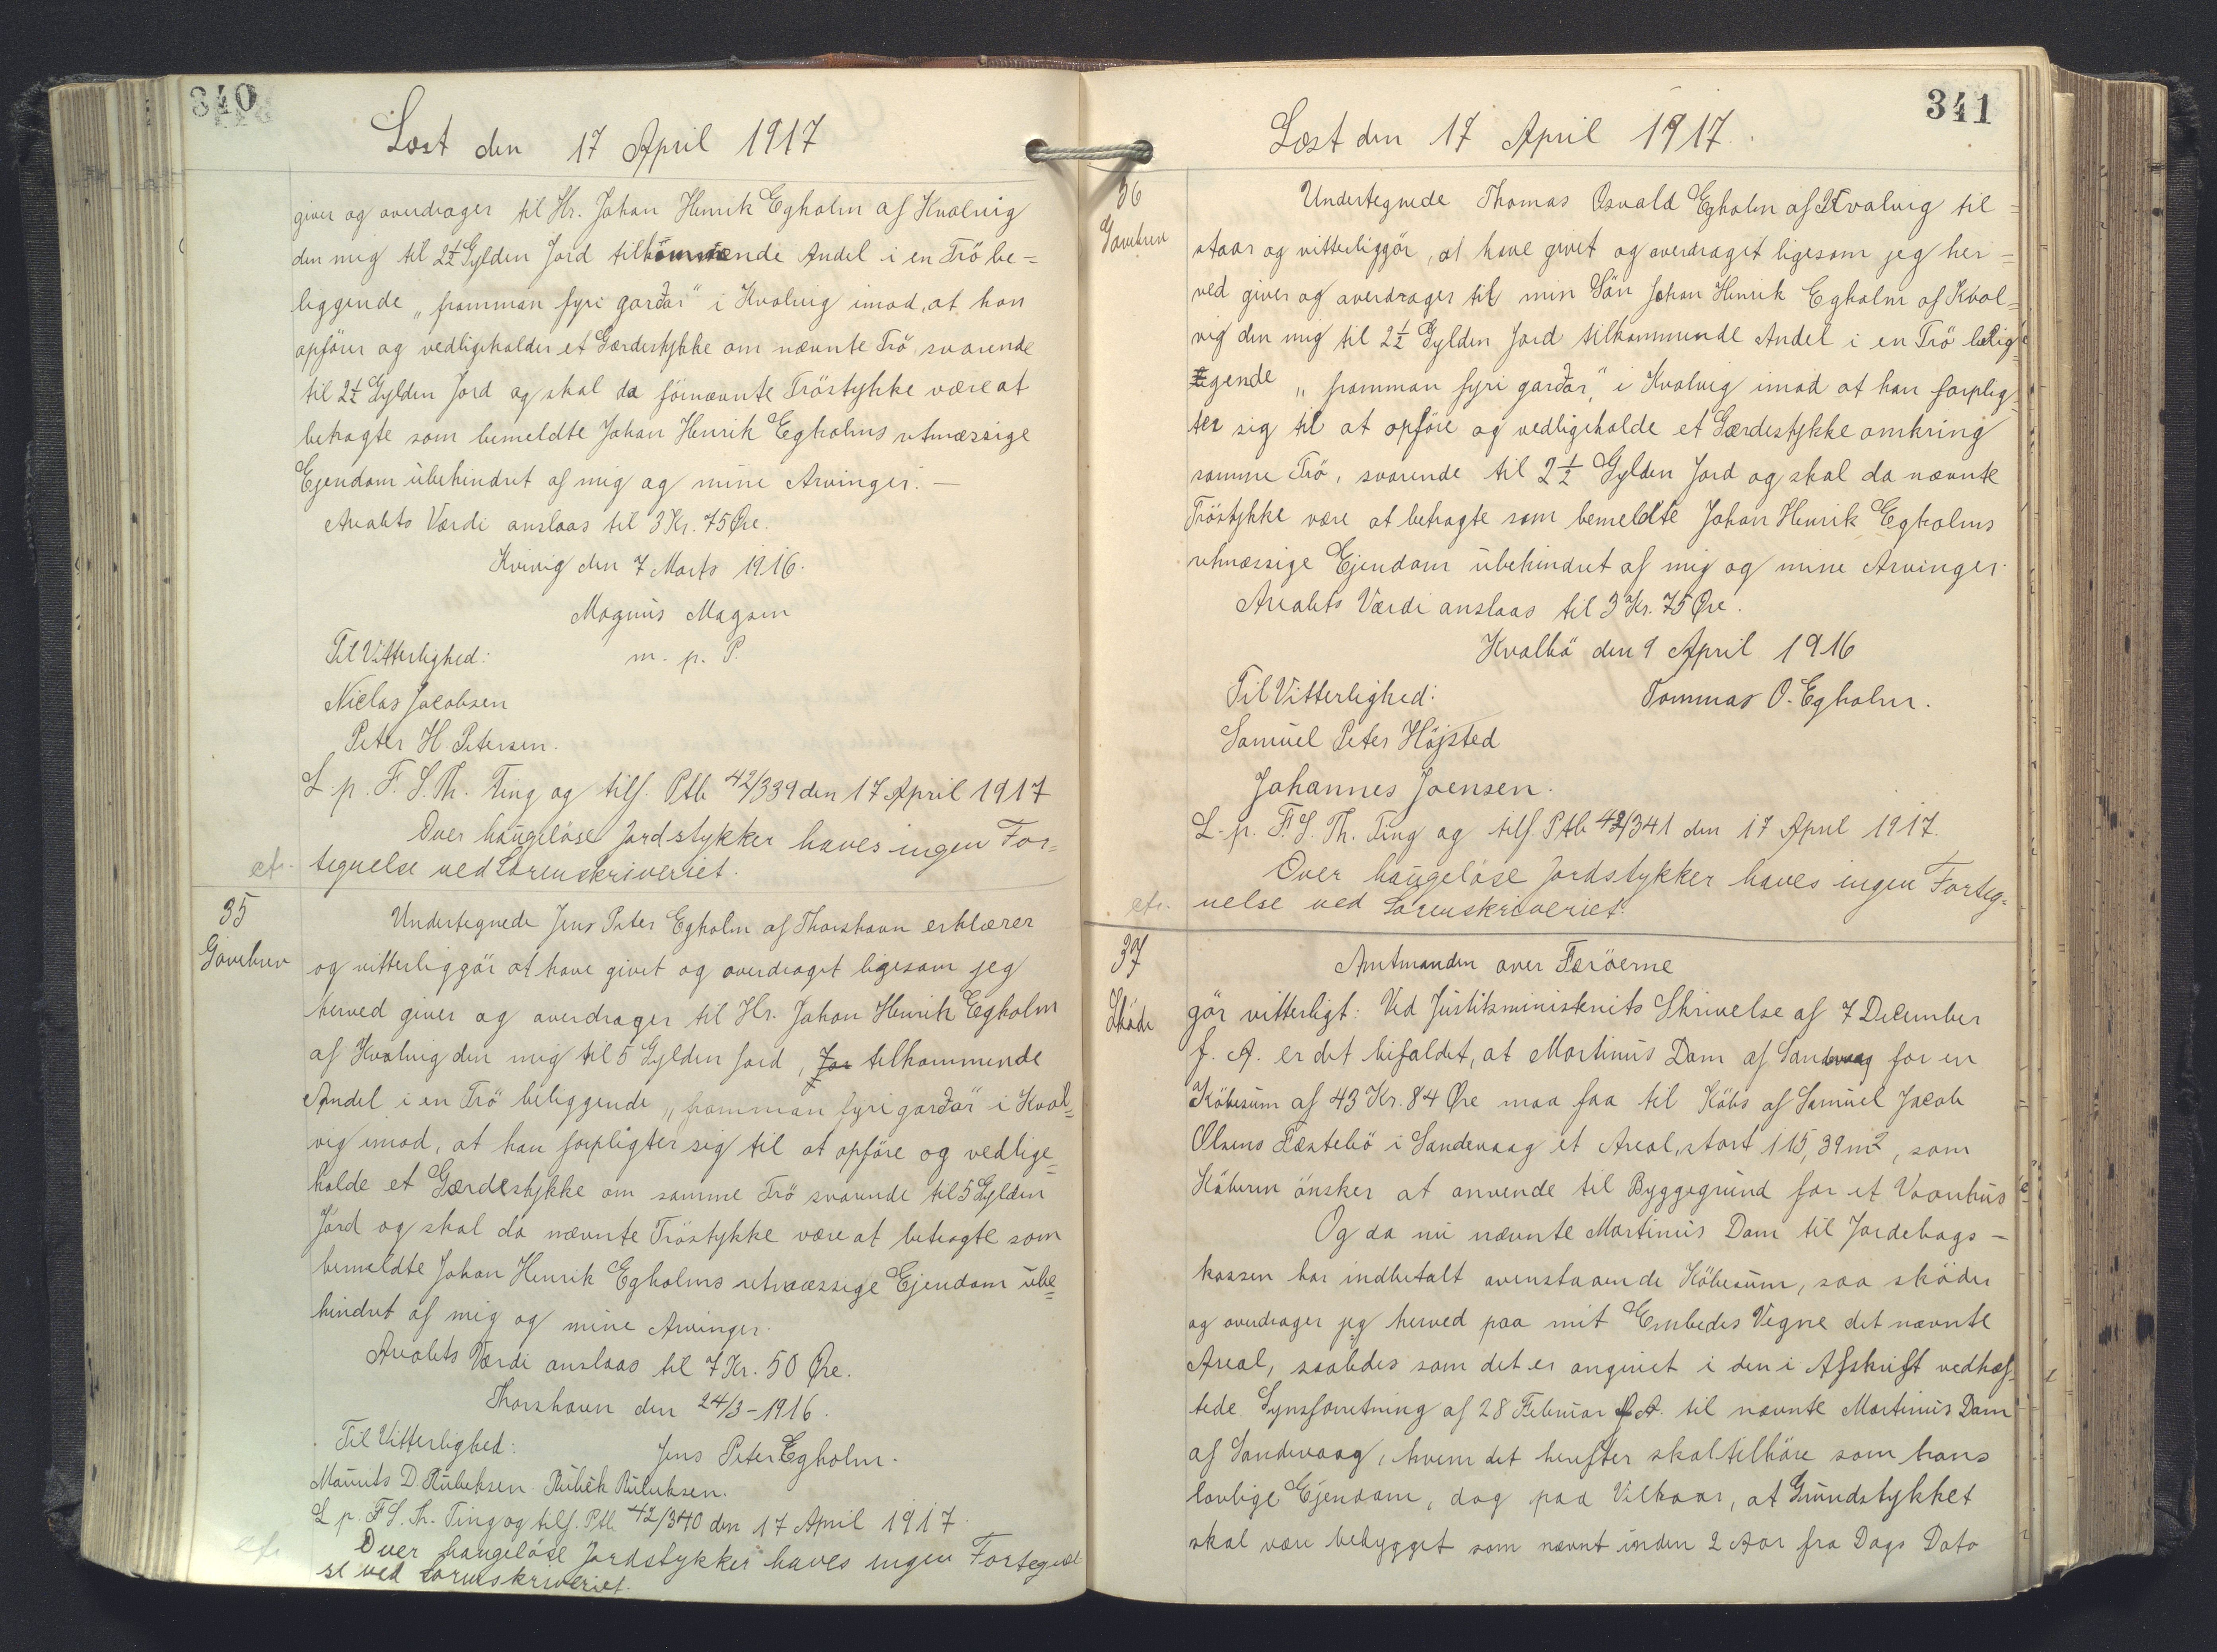 340
Læst den 17 April 1917
giver og overdrager til Hr. Johan Henrik Egholm af Hvalvig
den mig til 2½ Gylden Jord tilkommende Andel i en Trö be=
liggende „framman fyri garðar" i Hvalvig imod, at han
opförer og vedligeholder et Gærdestykke om nævnte Trö svarende
til 2½ Gylden Jord og skal da fornævnte Tröstykke være at
betragte som bemeldte Johan Henrik Egholms retmæssige
Ejendom ubehindret af mig og mine Arvinger. —
Arealets Værdi anslaas til 3 Kr. 75 Øre.
Kvivig den 7 Marts 1916.
Magnus Magsen
Til Vitterlighed: m. p. P.
Niclas Jacobsen
Peter H Petersen.
L. p. F. S. Th. Ting og tilf. Ptb 42/339 den 17 April 1917
Over haugelöse Jordstykker haves ingen For=
etr. tegnelse ved Sorenskriveriet.
35
Undertegnede Jens Peter Egholm af Thorshavn erklærer
Gavebrev og vitterliggör at have givet og overdraget ligesom jeg
herved giver og overdrager til Hr. Johan Henrik Egholm
af Hvalvig den mig til 5 Gylden Jord, Jor tilkommende
Andel i en Trö beliggende „framman fyri garðar" i Hval=
vig imod, at han forpligter sig til at opföre og vedlige=
holde et Gærdestykke om samme Trö svarende til 5 Gylden
Jord og skal da nævnte Tröstykke være at betragte som
bemeldte Johan Henrik Egholms retmæssige Ejendom ube=
hindret af mig og mine Arvinger.
Arealets Værdi anslaas til 7 Kr. 50 Øre.
Thorshavn den 24/3-1916.
Til Vitterlighed: Jens Peter Egholm.
Maurits D. Rubeksen. Rubek Rubeksen.
L p. F S. Th. Ting og tilf. Ptb 42/340 den 17 April 1917.
Over haugelöse Jordstykker haves ingen Fortegnel
etr. se ved Sorenskriveriet.
341
Læst den 17 April 1917.
36
Undertegnede Thomas Osvald Egholm af Hvalvig til=
Gavebrev staar og vitterliggör, at have givet og overdraget ligesom jeg her=
ved giver og overdrager til min Sön Johan Henrik Egholm af Hval=
vig den mig til 2½ Gylden Jord tilkommende Andel i en Trö belig=
gende „framman fyri garðar", i Hvalvig imod at han forplig=
ter sig til at opföre og vedligeholde et Gærdestykke omkring
samme Trö, svarende til 2½ Gylden Jord og skal da nævnte
Tröstykke være at betragte som bemeldte Johan Henrik Egholms
retmæssige Ejendom ubehindret af mig og mine Arvinger.
Arealets Værdi anslaas til 3 Kr. 75 Øre.
Hvalbö den 9 April 1916
Til Vitterlighed: Tommas O. Egholm.
Samuel Peter Höjsted
Johannes Joensen.
L. p. F. S. Th. Ting og tilf. Ptb 42/341 den 17 April 1917.
Over haugelöse Jordstykker haves ingen Forteg=
etr. nelse ved Sorenskriveriet.
37
Amtmanden over Færöerne
Sköde gör vitterligt: Ved Justitsministeriets Skrivelse af 7 December
f. A. er det bifaldet, at Martinus Dam af Sandevaag for en
Köbesum af 43 Kr. 84 Øre maa faa til Köbs af Samuel Jacob
Olsens Fæstebö i Sandevaag et Areal, stort 115,39 m2, som
Köberen önsker at anvende til Byggegrund for et Vaanhus
Og da nu nævnte Martinus Dam til Jordebogs—
kassen har indbetalt ovenstaaende Köbesum, saa sköder
og overdrager jeg herved paa mit Embedes Vegne det nævnte
Areal, saaledes som det er angivet i den i Afskrift vedhæf=
tede Synsforretning af 28 Februar f. A. til nævnte Martinus Dam
af Sandevaag, hvem det herefter skal tilhöre som hans
lovlige Ejendom, dog paa Vilkaar, at Grundstykket
skal være bebygget som nævnt inden 2 Aar fra Dags Dato